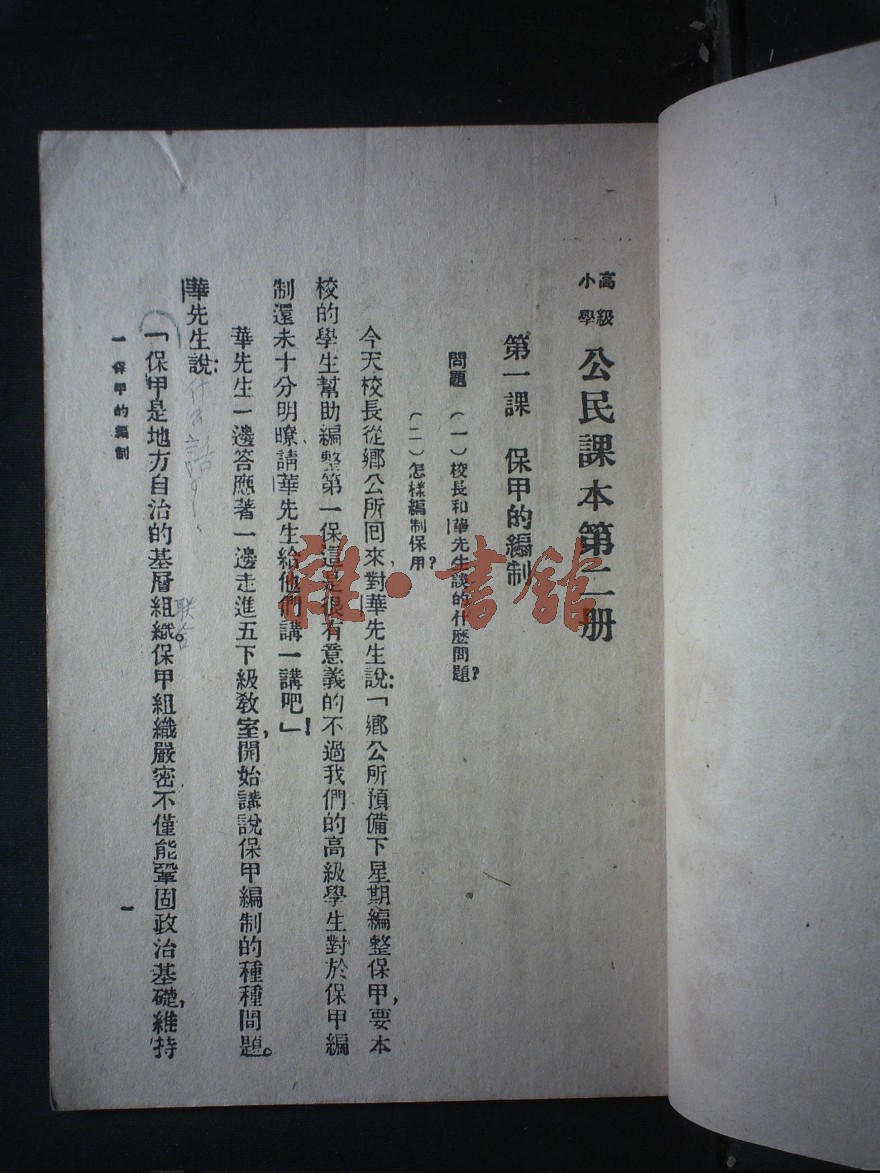 高級
小學
公民課本第二册
第一課　保甲的編制
問題　(一)校長和華先生談的什麽問題?
(二)怎樣編制保甲?
今天校長從鄉公所回來對華先生說:「鄉公所預備下星期編整保甲,要本
校的學生幫助編整第一保這是很有意義的不過我們的高級學生對於保甲編
制還未十分明瞭請華先生給他們講一講吧」!
華先生一邊答應著一邊走進五下級教室,開始講說保甲編制的種種問題。
華先生說:
什么話
「保甲是地方自治的基層組織。保甲組織嚴密不僅能鞏固政治基礎,維持
联
一　保甲的編制
一
雜·書館